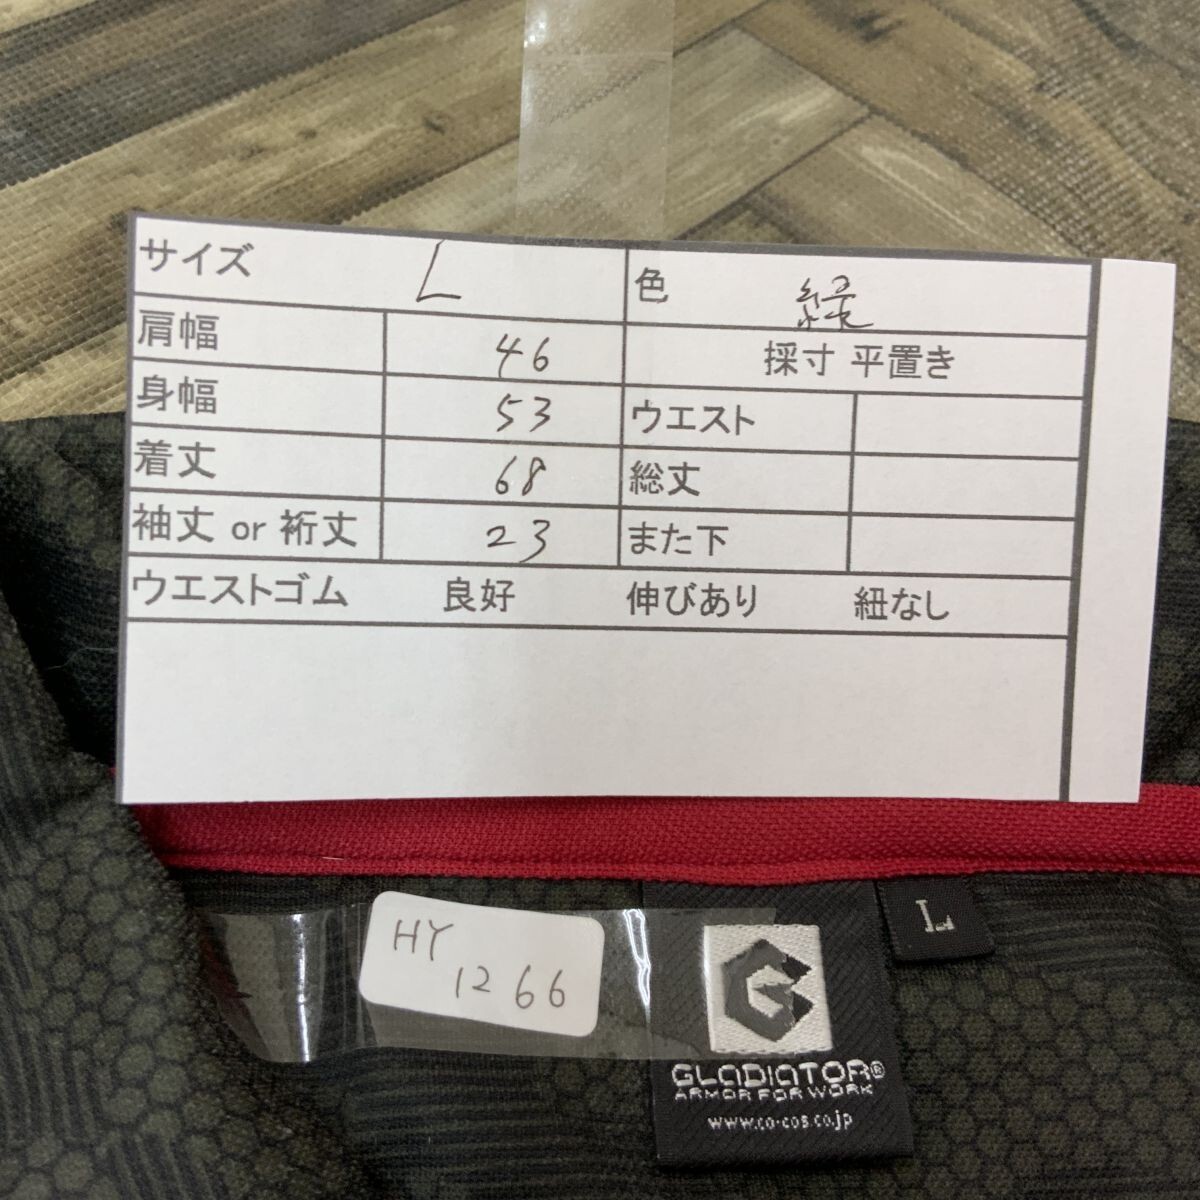 サイズ L 色 緑
肩幅 46 採寸 平置き
身幅 53 ウエスト
着丈 68 総丈
袖丈 or 裄丈 23 また下
ウエストゴム 良好 伸びあり 紐なし
HY
1266
L
G
GLADIATOR®
ARMOR FOR WORK
www.co-cos.co.jp